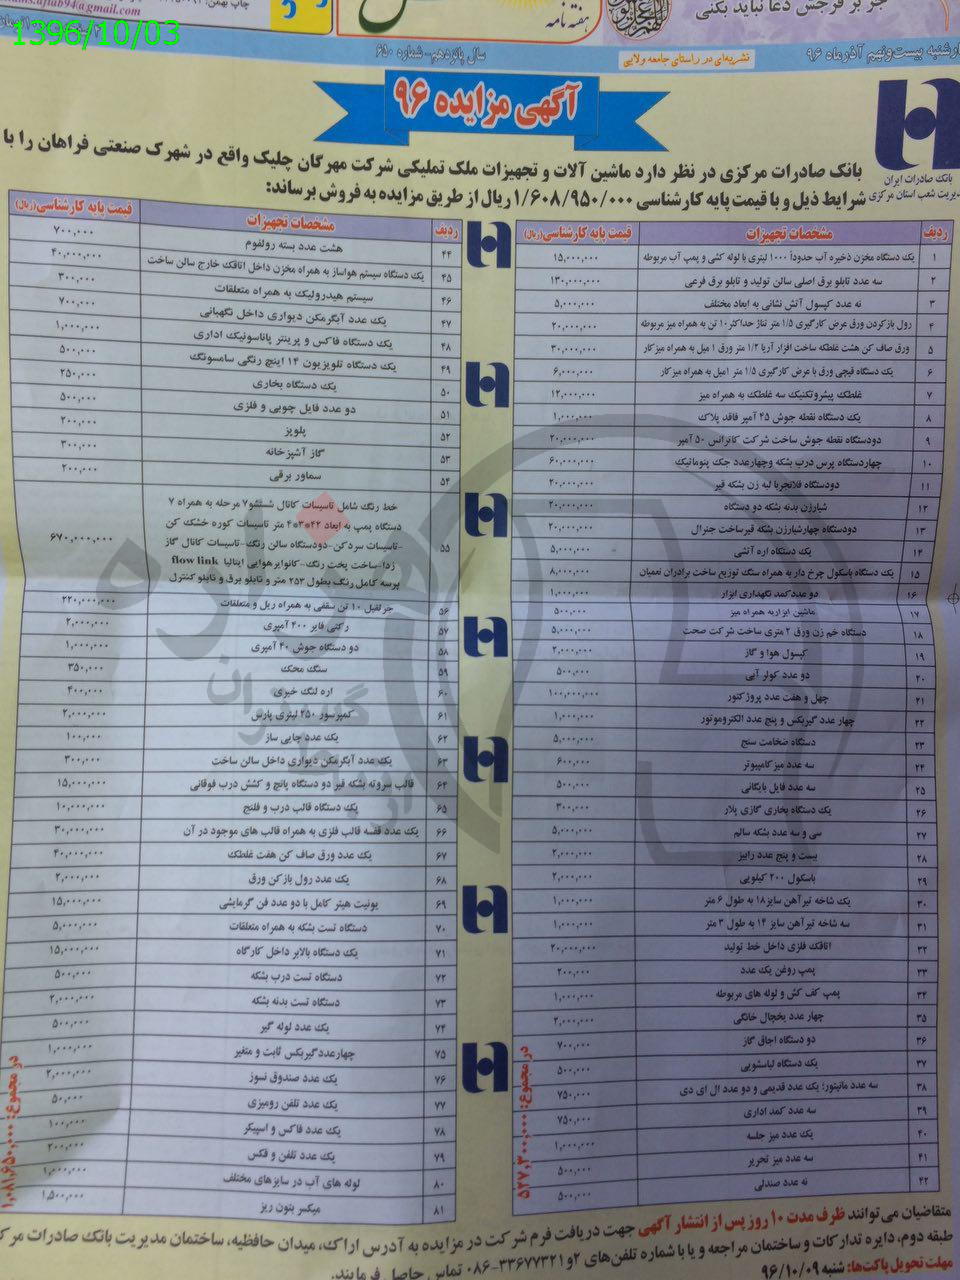 1396/10/03
چاپ بهمن:
ams.aftab94@gmail.com
هفته نامه
جز بر فرجش دعا نباید بکنی
سال پانزدهم- شماره ۶۵۰
نشریه‌ای در راستای جامعه ولایی
بیست‌ونهم آذرماه ۹۶
آگهی مزایده ۹۶
بانک صادرات ایران
مدیریت شعب استان مرکزی
بانک صادرات مرکزی در نظر دارد ماشین آلات و تجهیزات ملک تملیکی شرکت مهرگان چلیک واقع در شهرک صنعتی فراهان را با
شرایط ذیل و با قیمت پایه کارشناسی ۱/۶۰۸/۹۵۰/۰۰۰ ریال از طریق مزایده به فروش برساند:
ردیف مشخصات تجهیزات قیمت پایه کارشناسی(ریال)
۱ یک دستگاه مخزن ذخیره آب حدوداً ۱۰۰۰ لیتری با لوله کشی و پمپ آب مربوطه ۱۵,۰۰۰,۰۰۰
۲ سه عدد تابلو برق اصلی سالن تولید و تابلو برق فرعی ۱۳۰,۰۰۰,۰۰۰
۳ نه عدد کپسول آتش نشانی به ابعاد مختلف ۵,۰۰۰,۰۰۰
۴ رول بازکردن ورق عرض کارگیری ۱/۵ متر تناژ حداکثر ۱۰ تن به همراه میز مربوطه ۲۰,۰۰۰,۰۰۰
۵ ورق صاف کن هشت غلطکه ساخت افزار آریا ۱/۲ متر ورق ۱ میل به همراه میزکار ۳۰,۰۰۰,۰۰۰
۶ یک دستگاه قیچی ورق با عرض کارگیری ۱/۵ متر ۱میل به همراه میزکار ۶,۰۰۰,۰۰۰
۷ غلطک پیشروتکنیک سه غلطک به همراه میز ۱۲,۰۰۰,۰۰۰
۸ یک دستگاه نقطه جوش ۴۵ آمپر فاقد پلاک ۱,۰۰۰,۰۰۰
۹ دودستگاه نقطه جوش ساخت شرکت کاترانس ۵۰ آمپر ۲۰,۰۰۰,۰۰۰
۱۰ چهاردستگاه پرس درب بشکه وچهارعدد جک پنوماتیک ۶۰,۰۰۰,۰۰۰
۱۱ دودستگاه فلانجریا لبه زن بشکه قیر ۲۰,۰۰۰,۰۰۰
۱۲ شیارزن بدنه بشکه دو دستگاه ۲۰,۰۰۰,۰۰۰
۱۳ دودستگاه چهارشیارزن بشکه قیرساخت جنرال ۲۰,۰۰۰,۰۰۰
۱۴ یک دستگاه اره آتشی ۵,۰۰۰,۰۰۰
۱۵ یک دستگاه باسکول چرخ دار به همراه سنگ توزیع ساخت برادران نعمیان ۸,۰۰۰,۰۰۰
۱۶ دو عددکمد نگهداری ابزار ۱,۰۰۰,۰۰۰
۱۷ ماشین ابزاربه همراه میز ۵۰۰,۰۰۰
۱۸ دستگاه خم زن ورق ۲ متری ساخت شرکت صحت ۵,۰۰۰,۰۰۰
۱۹ کپسول هوا و گاز ۲,۰۰۰,۰۰۰
۲۰ دو عدد کولر آبی ۵۰۰,۰۰۰
۲۱ چهل و هفت عدد پروژکتور ۱۰۰,۰۰۰,۰۰۰
۲۲ چهار عدد گیربکس و پنج عدد الکتروموتور ۱,۰۰۰,۰۰۰
۲۳ دستگاه ضخامت سنج ۵,۰۰۰,۰۰۰
۲۴ سه عدد میزکامپیوتر ۶۰۰,۰۰۰
۲۵ سه عدد فایل بایگانی ۵۰۰,۰۰۰
۲۶ یک دستگاه بخاری گازی پلار ۳۰۰,۰۰۰
۲۷ سی و سه عدد بشکه سالم ۵,۰۰۰,۰۰۰
۲۸ بیست و پنج عدد رابیز ۲,۰۰۰,۰۰۰
۲۹ باسکول ۲۰۰ کیلویی ۲,۰۰۰,۰۰۰
۳۰ یک شاخه تیرآهن سایز۱۸ به طول ۶ متر ۱,۰۰۰,۰۰۰
۳۱ سه شاخه تیرآهن سایز ۱۴ به طول ۳ متر ۱,۰۰۰,۰۰۰
۳۲ اتاقک فلزی داخل خط تولید ۲۰,۰۰۰,۰۰۰
۳۳ پمپ روغن یک عدد ۲۰۰,۰۰۰
۳۴ پمپ کف کش و لوله های مربوطه ۱,۰۰۰,۰۰۰
۳۵ چهار عدد یخچال خانگی ۲,۰۰۰,۰۰۰
۳۶ دو دستگاه اجاق گاز ۷۰۰,۰۰۰
۳۷ یک دستگاه لباسشویی ۵۰۰,۰۰۰
۳۸ سه عدد مانیتور؛ یک عدد قدیمی و دو عدد ال ای دی ۷۵۰,۰۰۰
۳۹ سه عدد کمد اداری ۷۵۰,۰۰۰
۴۰ یک عدد میز جلسه ۱,۰۰۰,۰۰۰
۴۱ سه عدد میز تحریر ۵۰۰,۰۰۰
۴۲ نه عدد صندلی ۵۰۰,۰۰۰
در مجموع: ۵۲۷,۳۰۰,۰۰۰
ردیف مشخصات تجهیزات قیمت پایه کارشناسی(ریال)
۴۴ هشت عدد بسته رولفوم ۷۰۰,۰۰۰
۴۵ یک دستگاه سیستم هواساز به همراه مخزن داخل اتاقک خارج سالن ساخت ۴۰,۰۰۰,۰۰۰
۴۶ سیستم هیدرولیک به همراه متعلقات ۳۰۰,۰۰۰
۴۷ یک عدد آبگرمکن دیواری داخل نگهبانی ۷۰۰,۰۰۰
۴۸ یک دستگاه فاکس و پرینتر پاناسونیک اداری ۱,۰۰۰,۰۰۰
۴۹ یک دستگاه تلویزیون ۱۴ اینچ رنگی سامسونگ ۵۰۰,۰۰۰
۵۰ یک دستگاه بخاری ۲۵۰,۰۰۰
۵۱ دو عدد فایل چوبی و فلزی ۵۰۰,۰۰۰
۵۲ پلوپز ۲۰۰,۰۰۰
۵۳ گاز آشپزخانه ۳۰۰,۰۰۰
۵۴ سماور برقی ۲۰۰,۰۰۰
خط رنگ شامل تاسیسات کانال شستشو۷ مرحله به همراه ۷
دستگاه پمپ به ابعاد ۴۲*۳*۴ متر تاسیسات کوره خشک کن
۵۵ -تاسیسات سردکن-دودستگاه سالن رنگ-تاسیسات کانال گاز ۶۷۰,۰۰۰,۰۰۰
زدا-ساخت پخت رنگ-کانوایرهوایی ایتالیا flow link
پرسه کامل رنگ بطول ۲۵۳ متر و تابلو برق و تابلو کنترل
۵۶ جرثقیل ۱۰ تن سقفی به همراه ریل و متعلقات ۲۲۰,۰۰۰,۰۰۰
۵۷ رکتی فایر ۴۰۰ آمپری ۲,۰۰۰,۰۰۰
۵۸ دو دستگاه جوش ۴۰ آمپری ۱,۰۰۰,۰۰۰
۵۹ سنگ محک ۳۵۰,۰۰۰
۶۰ اره لنگ خیری ۴۰۰,۰۰۰
۶۱ کمپرسور ۲۵۰ لیتری پارس ۲,۰۰۰,۰۰۰
۶۲ یک عدد چایی ساز ۱۰۰,۰۰۰
۶۳ یک عدد آبگرمکن دیواری داخل سالن ساخت ۳۰۰,۰۰۰
۶۴ قالب سروته بشکه قیر دو دستگاه پانچ و کشش درب فوقانی ۱۵,۰۰۰,۰۰۰
۶۵ یک دستگاه قالب درب و فلنج ۱۰,۰۰۰,۰۰۰
۶۶ یک عدد قفسه قالب فلزی به همراه قالب های موجود در آن ۳۰,۰۰۰,۰۰۰
۶۷ یک عدد ورق صاف کن هفت غلطک ۴۰,۰۰۰,۰۰۰
۶۸ یک عدد رول بازکن ورق ۲,۰۰۰,۰۰۰
۶۹ یونیت هیتر کامل با دو عدد فن گرمایشی ۱۵,۰۰۰,۰۰۰
۷۰ دستگاه تست بشکه به همراه متعلقات ۵,۰۰۰,۰۰۰
۷۱ یک دستگاه بالابر داخل کارگاه ۱۵,۰۰۰,۰۰۰
۷۲ دستگاه تست درب بشکه ۵۰۰,۰۰۰
۷۳ دستگاه تست بدنه بشکه ۲,۰۰۰,۰۰۰
۷۴ یک عدد لوله گیر ۵۰۰,۰۰۰
۷۵ چهارعددگیربکس ثابت و متغیر ۱,۰۰۰,۰۰۰
۷۶ یک عدد صندوق نسوز ۲,۰۰۰,۰۰۰
۷۷ یک عدد تلفن رومیزی ۵۰,۰۰۰
۷۸ یک عدد فاکس و اسپیکر ۱۰۰,۰۰۰
۷۹ یک عدد تلفن و فکس ۲۰۰,۰۰۰
۸۰ لوله های آب در سایزهای مختلف ۱,۰۰۰,۰۰۰
۸۱ میکسر بتون ریز ۱,۵۰۰,۰۰۰
در مجموع: ۱,۰۸۱,۶۵۰,۰۰۰
متقاضیان می‌توانند ظرف مدت ۱۰ روز پس از انتشار آگهی جهت دریافت فرم شرکت در مزایده به آدرس اراک، میدان حافظیه، ساختمان مدیریت بانک صادرات
طبقه دوم، دایره تدارکات و ساختمان مراجعه و یا با شماره تلفن‌های ۲و۳۳۶۷۷۳۲۱-۰۸۶ تماس حاصل فرمایند.
مهلت تحویل پاکت‌ها: شنبه ۹۶/۱۰/۰۹